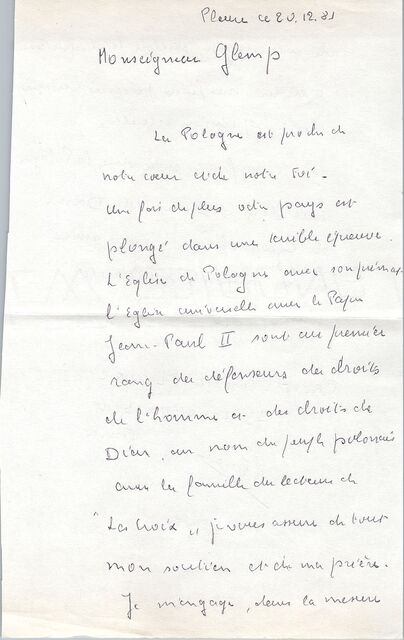 ce 20.12.81
Monseigneur Glemp
La Pologne est proche de
notre coeur et de notre Foi.
Une fois de plus votre pays est
plongé dans une terrible épreuve.
L'Eglise de Pologne avec son primat
l'Eglise universelle avec le Pape
Jean-Paul II sont au premier
rang des défenseurs des droits
de l'homme et des droits de
Dieu, au nom du peuple polonais
avec la famille des lecteurs de
"La Croix" je vous assure de tout
mon soutien et de ma prière.
Je m'engage, dans la mesure